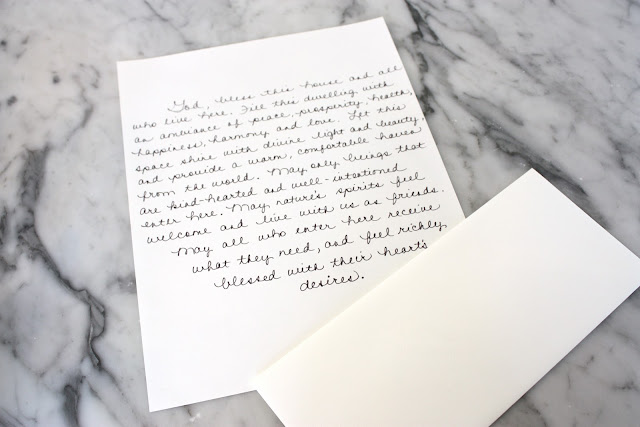 God, bless this house and all
who live here. Fill this dwelling with
an ambiance of peace, prosperity, health,
happiness, harmony and love. Let this
space shine with divine light and beauty,
and provide a warm, comfortable haven
from the world. May only beings that
are kind-hearted and well-intentioned
enter here. May nature's spirits feel
welcome and live with us as friends.
May all who enter here receive
what they need, and feel richly
blessed with their heart's
desires.